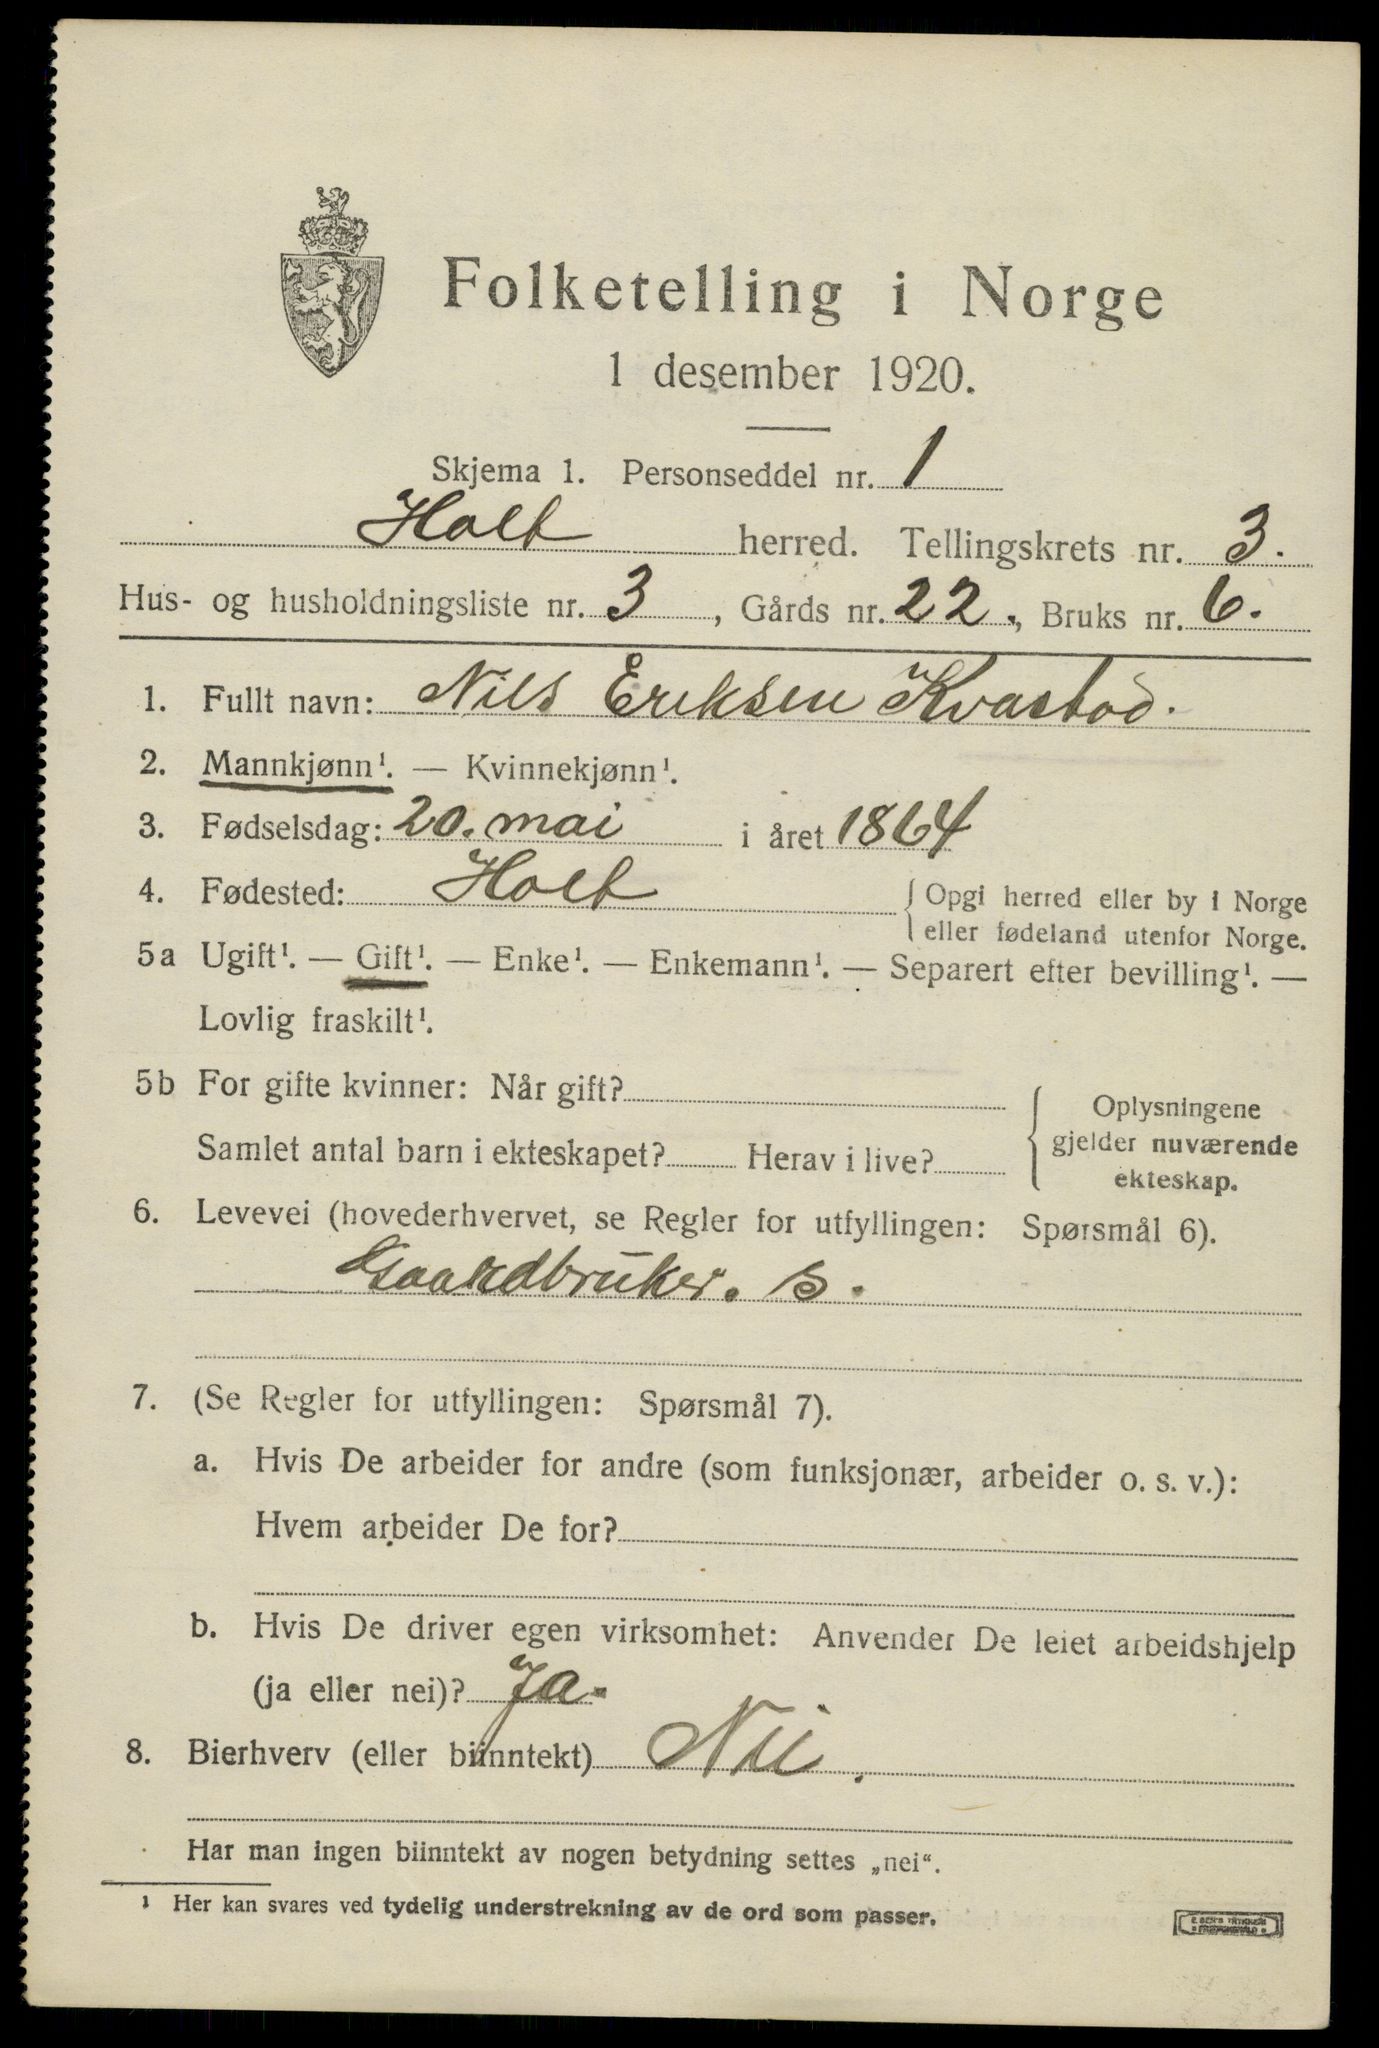 Folketelling i Norge
1 desember 1920.
Skjema 1. Personseddel nr. 1
Holt herred. Tellingskrets nr. 3.
Hus- og husholdningsliste nr. 3, Gårds nr. 22., Bruks nr. 6.
1. Fullt navn: Nils Eriksen Kvastad.
2. Mannkjønn¹. — Kvinnekjønn¹.
3. Fødselsdag: 20. mai i året 1864
4. Fødested: Holt
Opgi herred eller by i Norge
eller fødeland utenfor Norge.
5a Ugift¹. — Gift¹. — Enke¹. — Enkemann¹. — Separert efter bevilling¹. —
Lovlig fraskilt¹.
5b For gifte kvinner: Når gift?
Samlet antal barn i ekteskapet? Herav i live?
Oplysningene
gjelder nuværende
ekteskap.
6. Levevei (hovederhvervet, se Regler for utfyllingen: Spørsmål 6).
Gaardbruker. s.
7. (Se Regler for utfyllingen: Spørsmål 7).
a. Hvis De arbeider for andre (som funksjonær, arbeider o. s. v.):
Hvem arbeider De for?
b. Hvis De driver egen virksomhet: Anvender De leiet arbeidshjelp
(ja eller nei)? Ja.
8. Bierhverv (eller biinntekt) Nei.
Har man ingen biinntekt av nogen betydning settes „nei“.
¹ Her kan svares ved tydelig understrekning av de ord som passer.